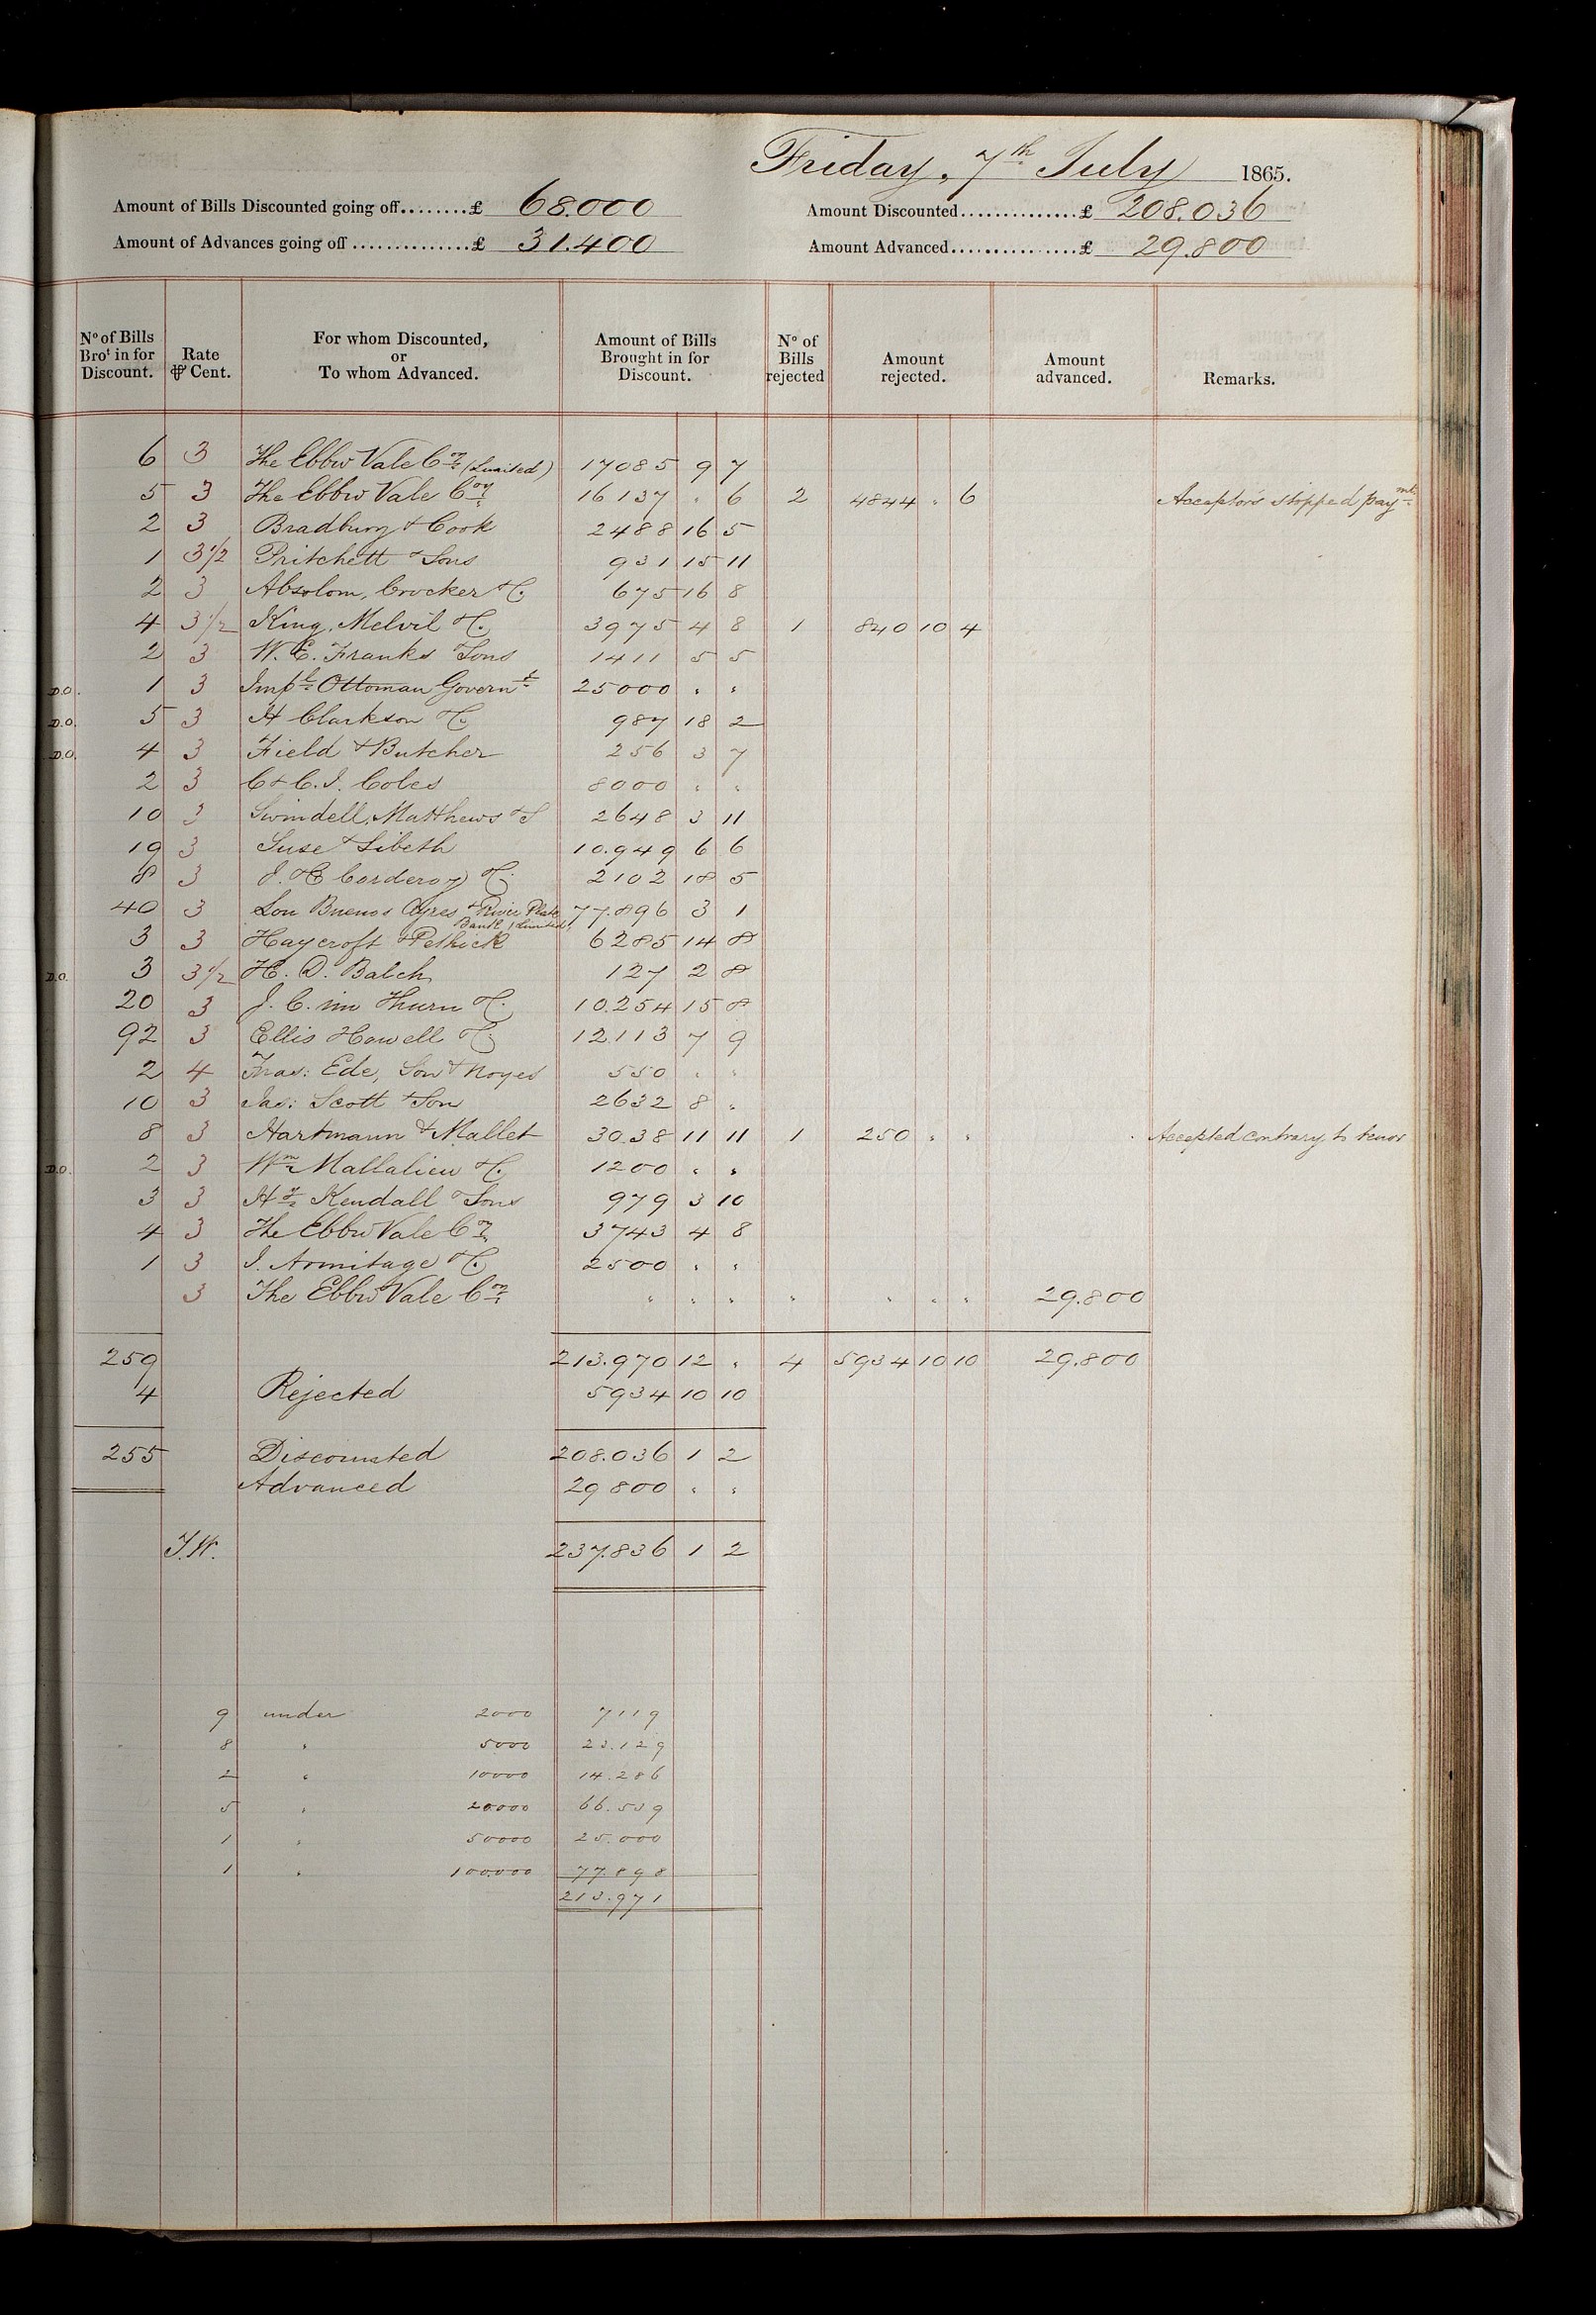 Friday, 7th July 1865.
Amount of Bills Discounted going off........£ 68.000 Amount Discounted..............£ 208.036
Amount of Advances going off ..............£ 31.400 Amount Advanced...............£ 29.800
No of Bills Brot in for Discount. Rate ⅌ Cent. For whom Discounted, or To whom Advanced. Amount of Bills Brought in for Discount. No of Bills rejected Amount rejected. Amount advanced. Remarks.
6 3 The Ebbw Vale Coy (Limited) 17085 9 7
5 3 The Ebbw Vale Coy 16137 " 6 2 4844 " 6 Acceptors stopped paymt
2 3 Bradbury & Cook 2488 16 5
1 3 1/2 Pritchett & Sons 931 15 11
2 3 Absolom, Crocker & C. 675 16 8
4 3 1/2 King, Melvil & C. 3975 4 8 1 840 10 4
2 3 W. E. Franks & Sons 1411 5 5
D.O. 1 3 Impl Ottoman Governt 25000 " "
D.O. 5 3 H Clarkson & C. 987 18 2
D.O. 4 3 Field & Butcher 256 3 7
2 3 C & C. J. Coles 8000 " "
10 3 Swindell, Matthews & S 2648 3 11
19 3 Suse & Sibeth 10.949 6 6
8 3 J. & E Corderoy & C. 2102 18 5
40 3 Lon Buenos Ayres & River Plate Bank (Limited) 77.896 3 1
3 3 Haycroft & Pethick 6285 14 8
D.O. 3 3 1/2 H. D. Balch 127 2 8
20 3 J. C. im Thurn & C. 10.254 15 8
92 3 Ellis Howell & C. 12.113 7 9
2 4 Fras: Ede, Son & Noyes 550 " "
10 3 Jas: Scott & Son 2632 8 "
8 3 Hartmann & Mallet 30.38 11 11 1 250 " " Accepted contrary to tenor
D.O. 2 3 Wm Mallalieu & C. 1200 " "
3 3 Hy Kendall & Sons 979 3 10
4 3 The Ebbw Vale Coy 3743 4 8
1 3 J. Armitage & C. 2500 " "
3 The Ebbw Vale Coy " " " " " " " 29.800
259 213.970 12 " 4 5934 10 10 29.800
4 Rejected 5934 10 10
255 Discounted 208.036 1 2
Advanced 29800 " "
J.W. 237.836 1 2
9 under 2000 7119
8 " 5000 23.129
2 " 10000 14.286
5 " 20000 66.539
1 " 50000 25.000
1 " 100.000 77.898
213.971